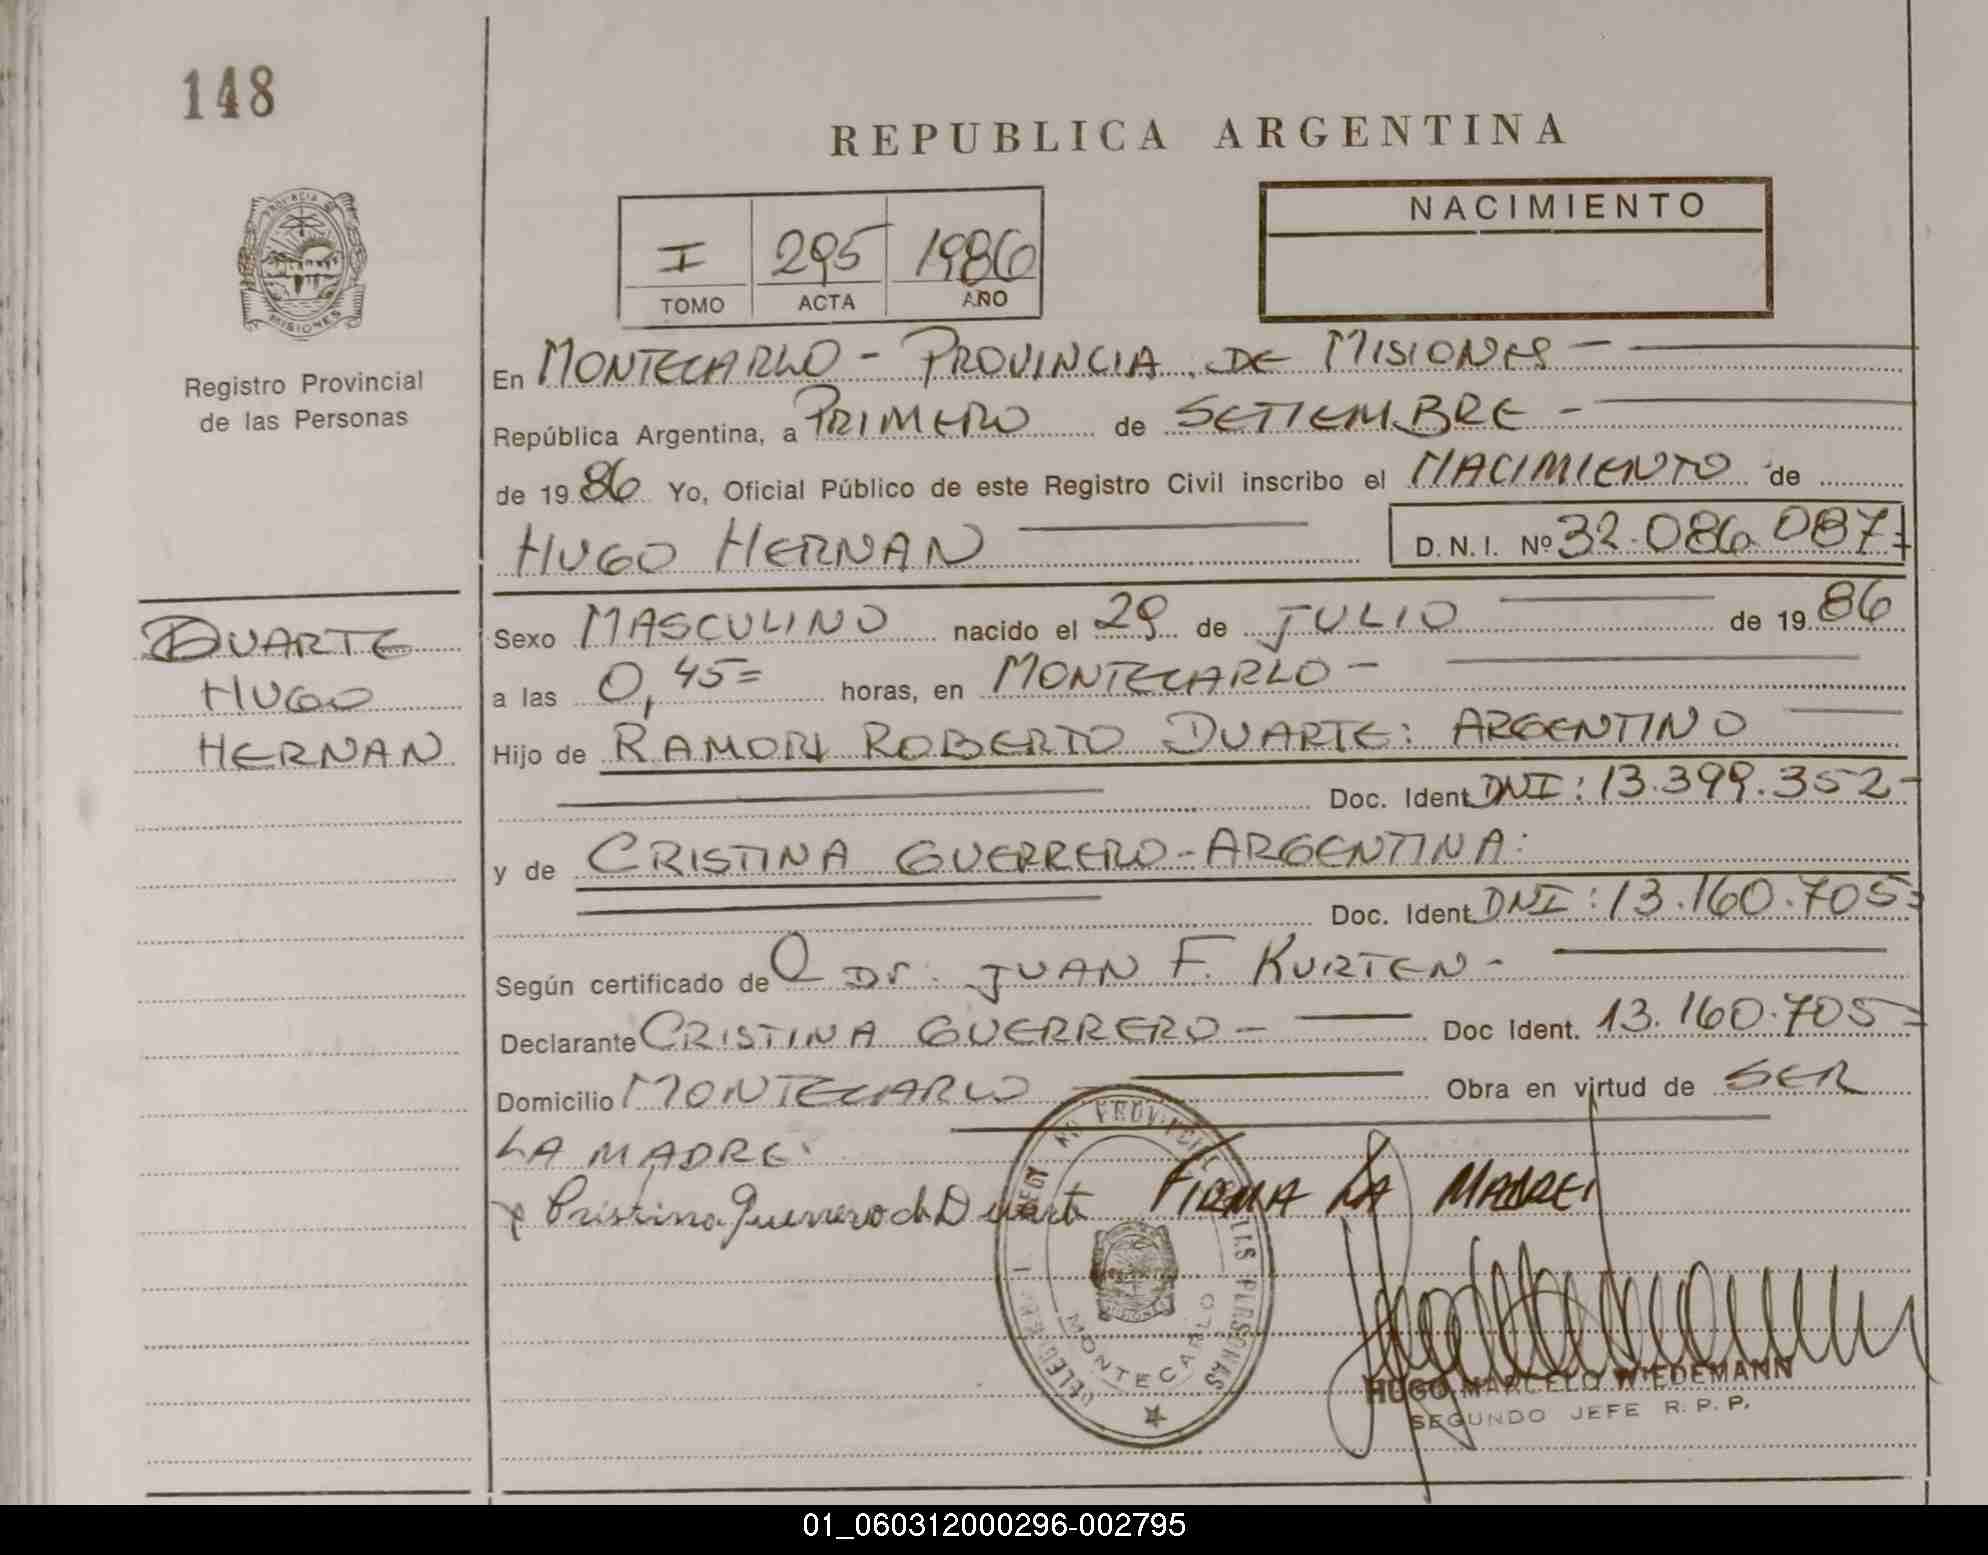 148
REPUBLICA ARGENTINA
NACIMIENTO
I 295 1986
TOMO ACTA AÑO
PROVINCIA DE
MISIONES
Registro Provincial
de las Personas
En MONTECARLO - PROVINCIA DE MISIONES -
República Argentina, a PRIMERO de SETIEMBRE -
de 1986 Yo, Oficial Público de este Registro Civil inscribo el NACIMIENTO de
HUGO HERNAN D.N.I. Nº 32.086.087=
DUARTE
HUGO
HERNAN
Sexo MASCULINO nacido el 29 de JULIO de 1986
a las 0,45= horas, en MONTECARLO -
Hijo de RAMON ROBERTO DUARTE: ARGENTINO
Doc. Ident DNI: 13.399.352-
y de CRISTINA GUERRERO - ARGENTINA:
Doc. Ident DNI: 13.160.705=
Según certificado de Dr. JUAN F. KURTEN -
Declarante CRISTINA GUERRERO - Doc Ident. 13.160.705=
Domicilio MONTECARLO Obra en virtud de SER
LA MADRE:
x Cristina Guerrero de Duarte FIRMA LA MADRE:
PROVINCIAL
PERSONAS
MONTECARLO
HUGO MARCELO WIEDEMANN
SEGUNDO JEFE R. P. P.
01_060312000296-002795